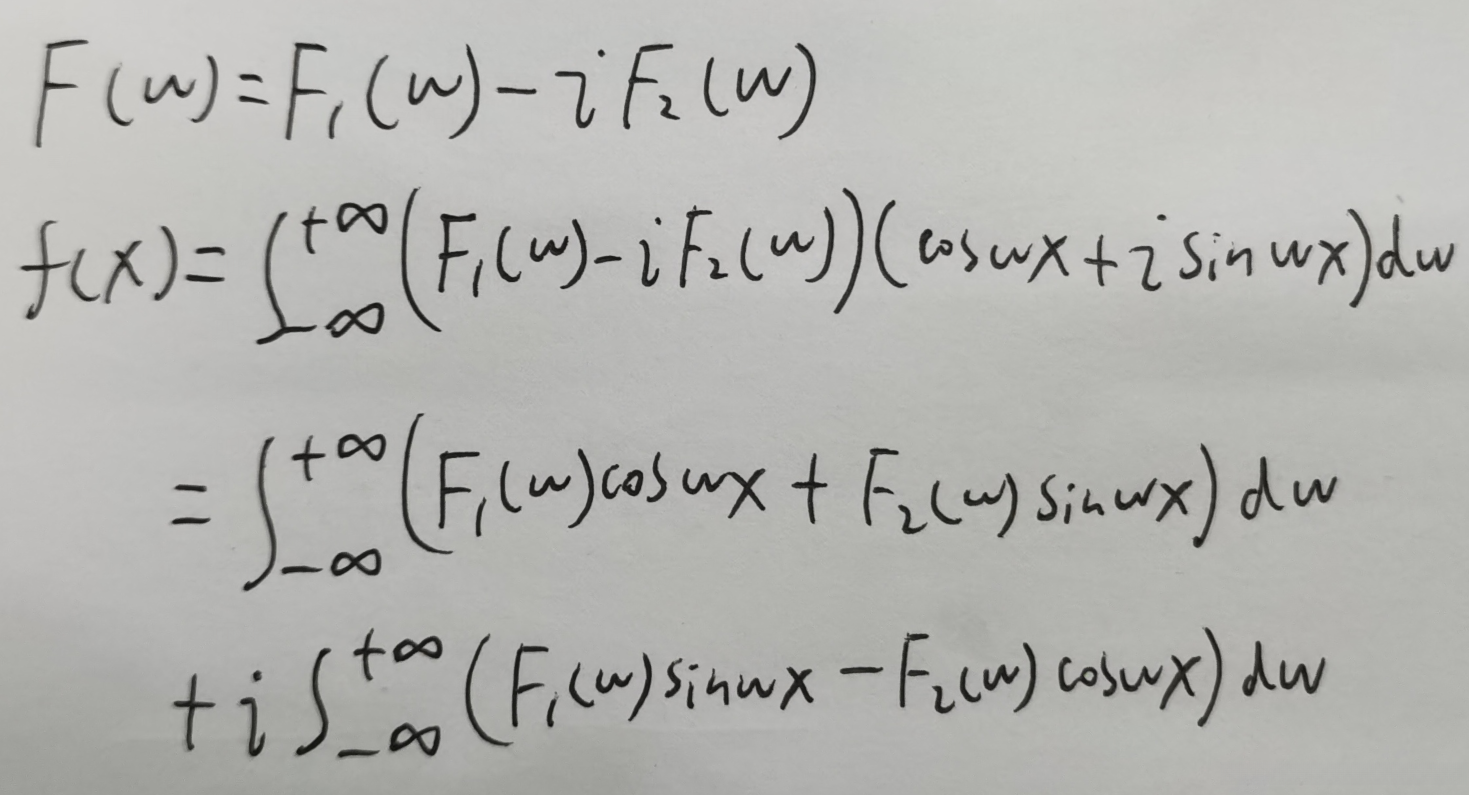 F(w)=F₁(w)-iF₂(w)
f(x)=∫_{-∞}^{+∞}(F₁(w)-iF₂(w))(cos wx+i sin wx)dw
=∫_{-∞}^{+∞}(F₁(w)cos wx+F₂(w) sin wx)dw
+i∫_{-∞}^{+∞}(F₁(w)sin wx-F₂(w) cos wx)dw